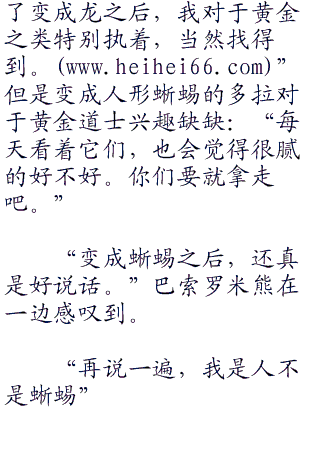 了变成龙之后，我对于黄金
之类特别执着，当然找得
到。(www.heihei66.com)”
但是变成人形蜥蜴的多拉对
于黄金道士兴趣缺缺：“每
天看着它们，也会觉得很腻
的好不好。你们要就拿走
吧。”
“变成蜥蜴之后，还真
是好说话。”巴索罗米熊在
一边感叹到。
“再说一遍，我是人不
是蜥蜴”